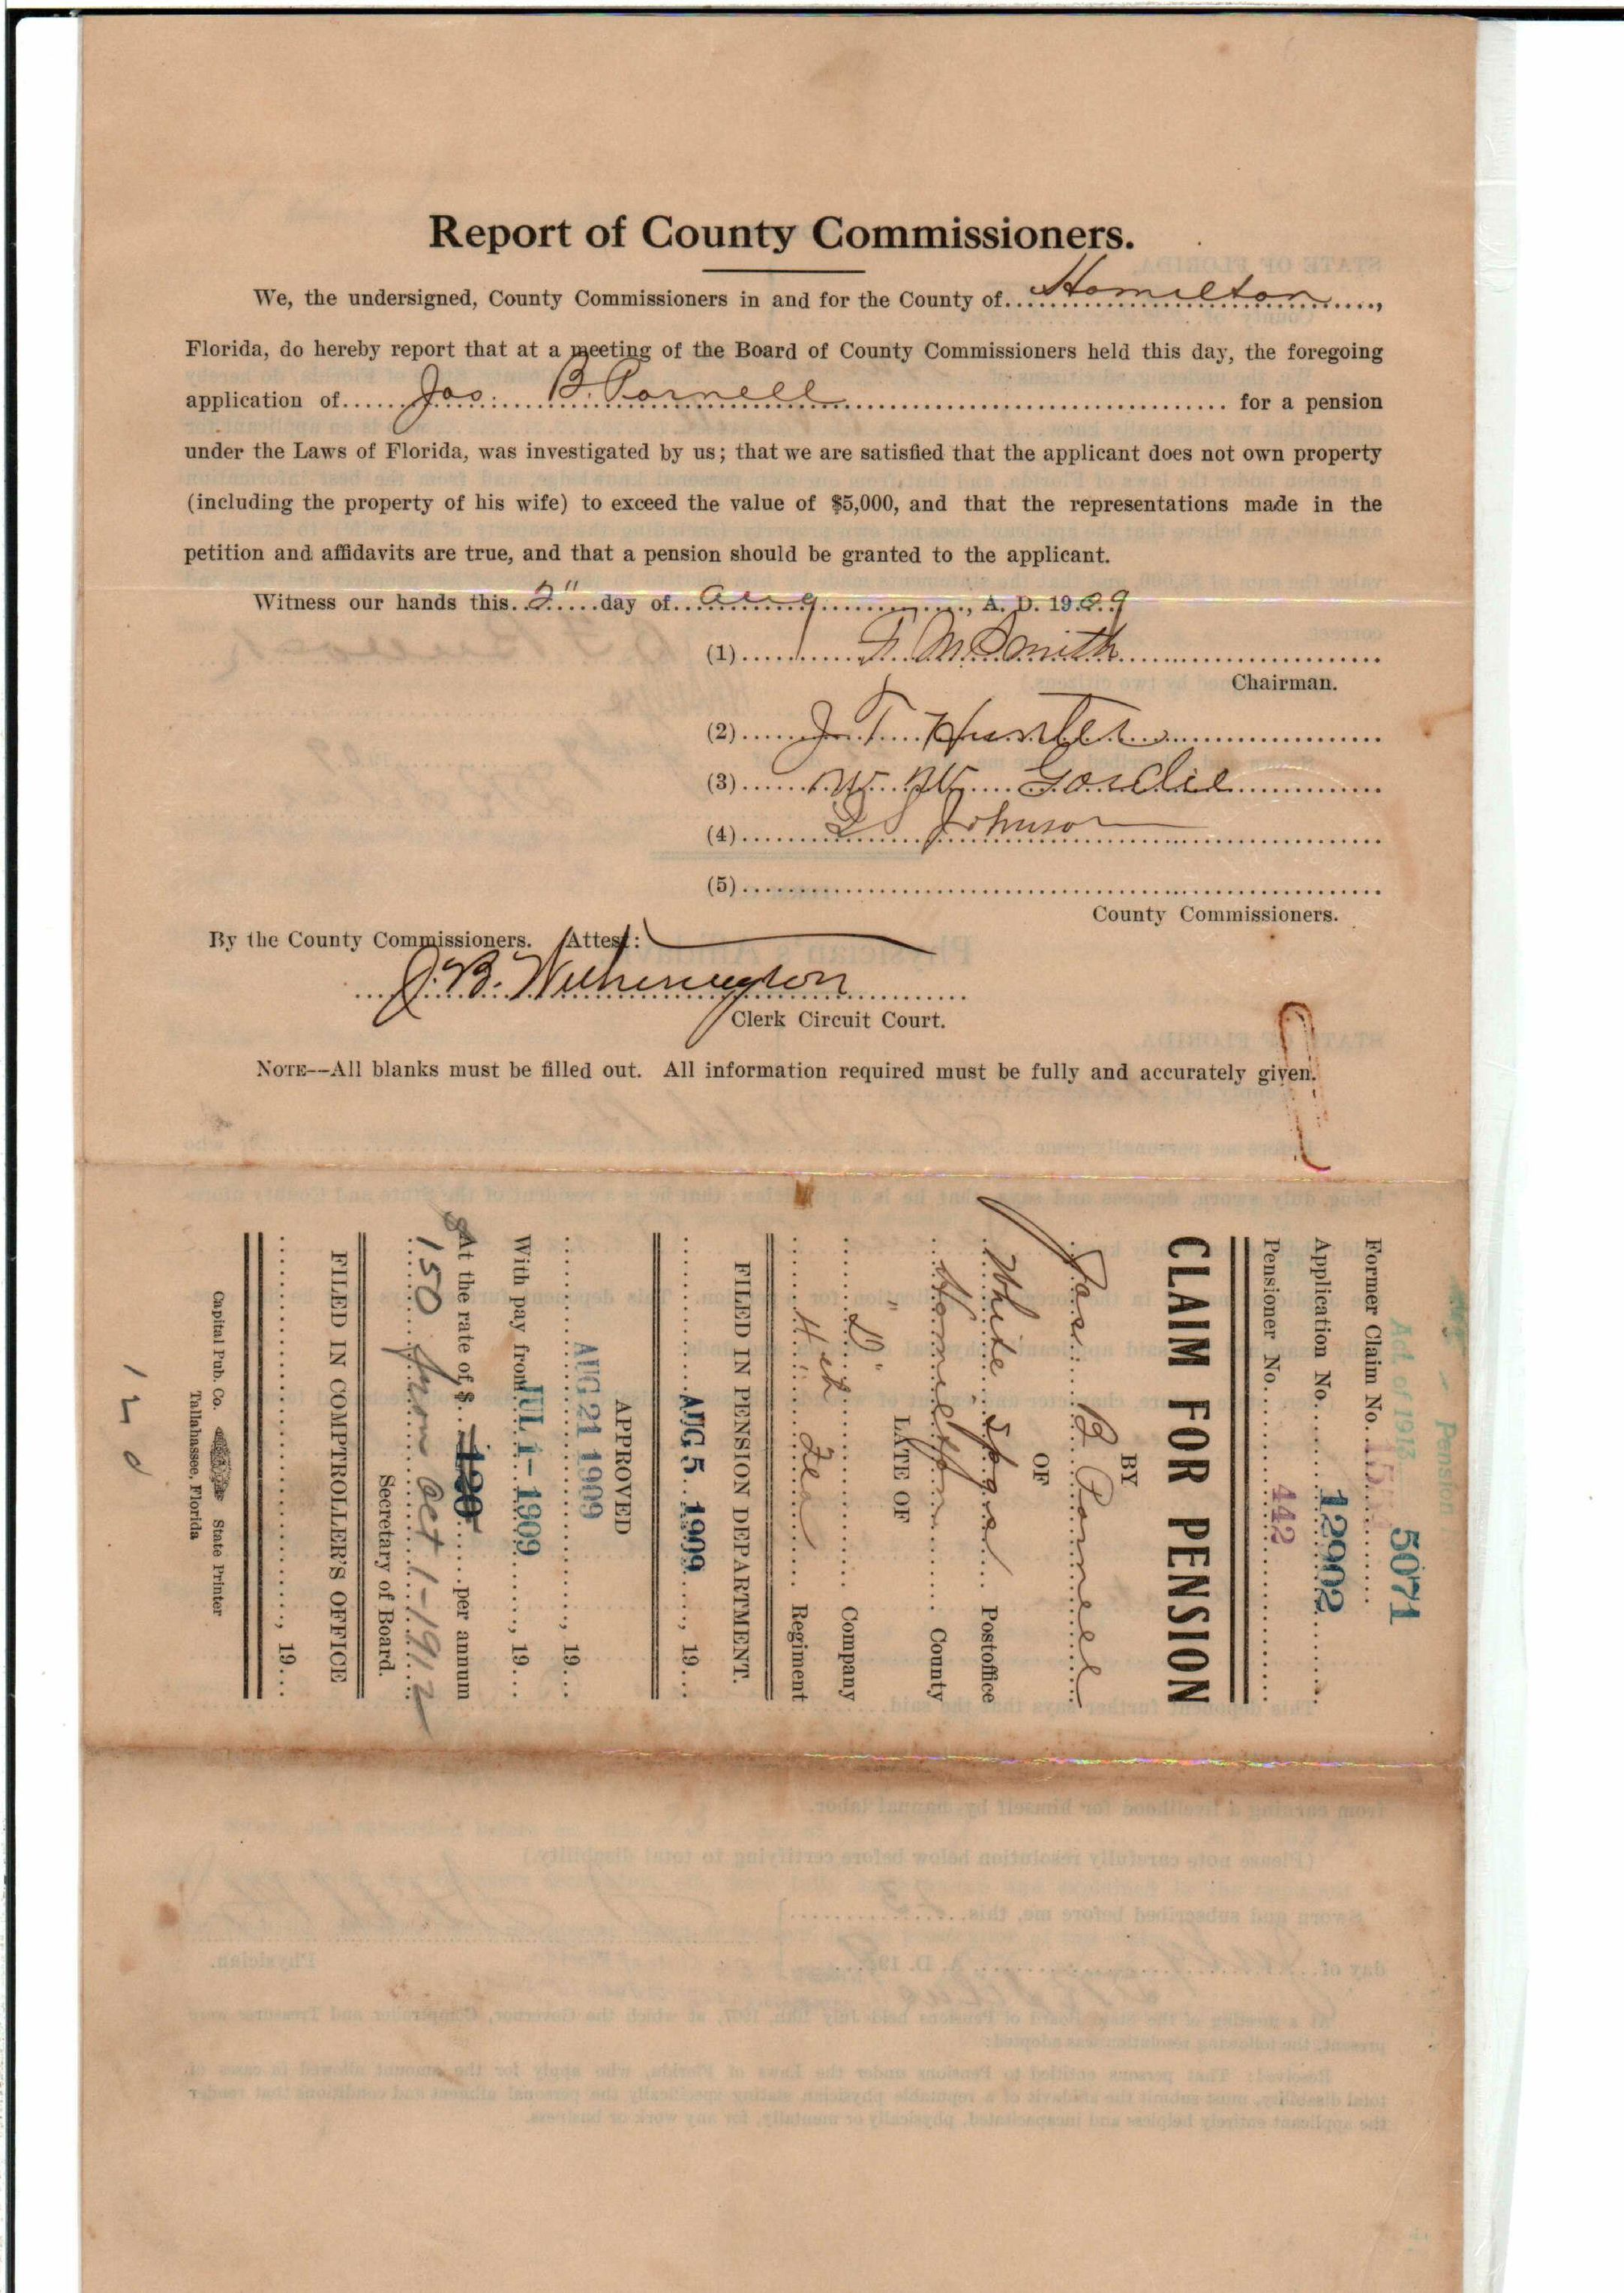 Report of County Commissioners.
We, the undersigned, County Commissioners in and for the County of Hamilton,
Florida, do hereby report that at a meeting of the Board of County Commissioners held this day, the foregoing
application of Jas. B. Parnell for a pension
under the Laws of Florida, was investigated by us; that we are satisfied that the applicant does not own property
(including the property of his wife) to exceed the value of $5,000, and that the representations made in the
petition and affidavits are true, and that a pension should be granted to the applicant.
Witness our hands this 2" day of Aug, A. D. 1909
(1) F. M. Smith
Chairman.
(2) J. T. Hunter
(3) W. W. Gosdie
(4) Johnson
(5)
County Commissioners.
By the County Commissioners. Attest:
J. B. Witherington
Clerk Circuit Court.
NOTE--All blanks must be filled out. All information required must be fully and accurately given.
Pension
Act of 1913
5071
Former Claim No.
Application No. 12902
Pensioner No. 442
CLAIM FOR PENSION
BY
Jas. B. Parnell
OF
White Spgs Postoffice
Hamilton County
LATE OF
"D" Company
4th Fla Regiment
FILED IN PENSION DEPARTMENT.
AUG 5 1909, 19
APPROVED
AUG 21 1909, 19
With pay from JUL 1-1909, 19
At the rate of $ 120 per annum
150 from Oct 1-1912
Secretary of Board.
FILED IN COMPTROLLER'S OFFICE
, 19
Capital Pub. Co. State Printer
Tallahassee, Florida